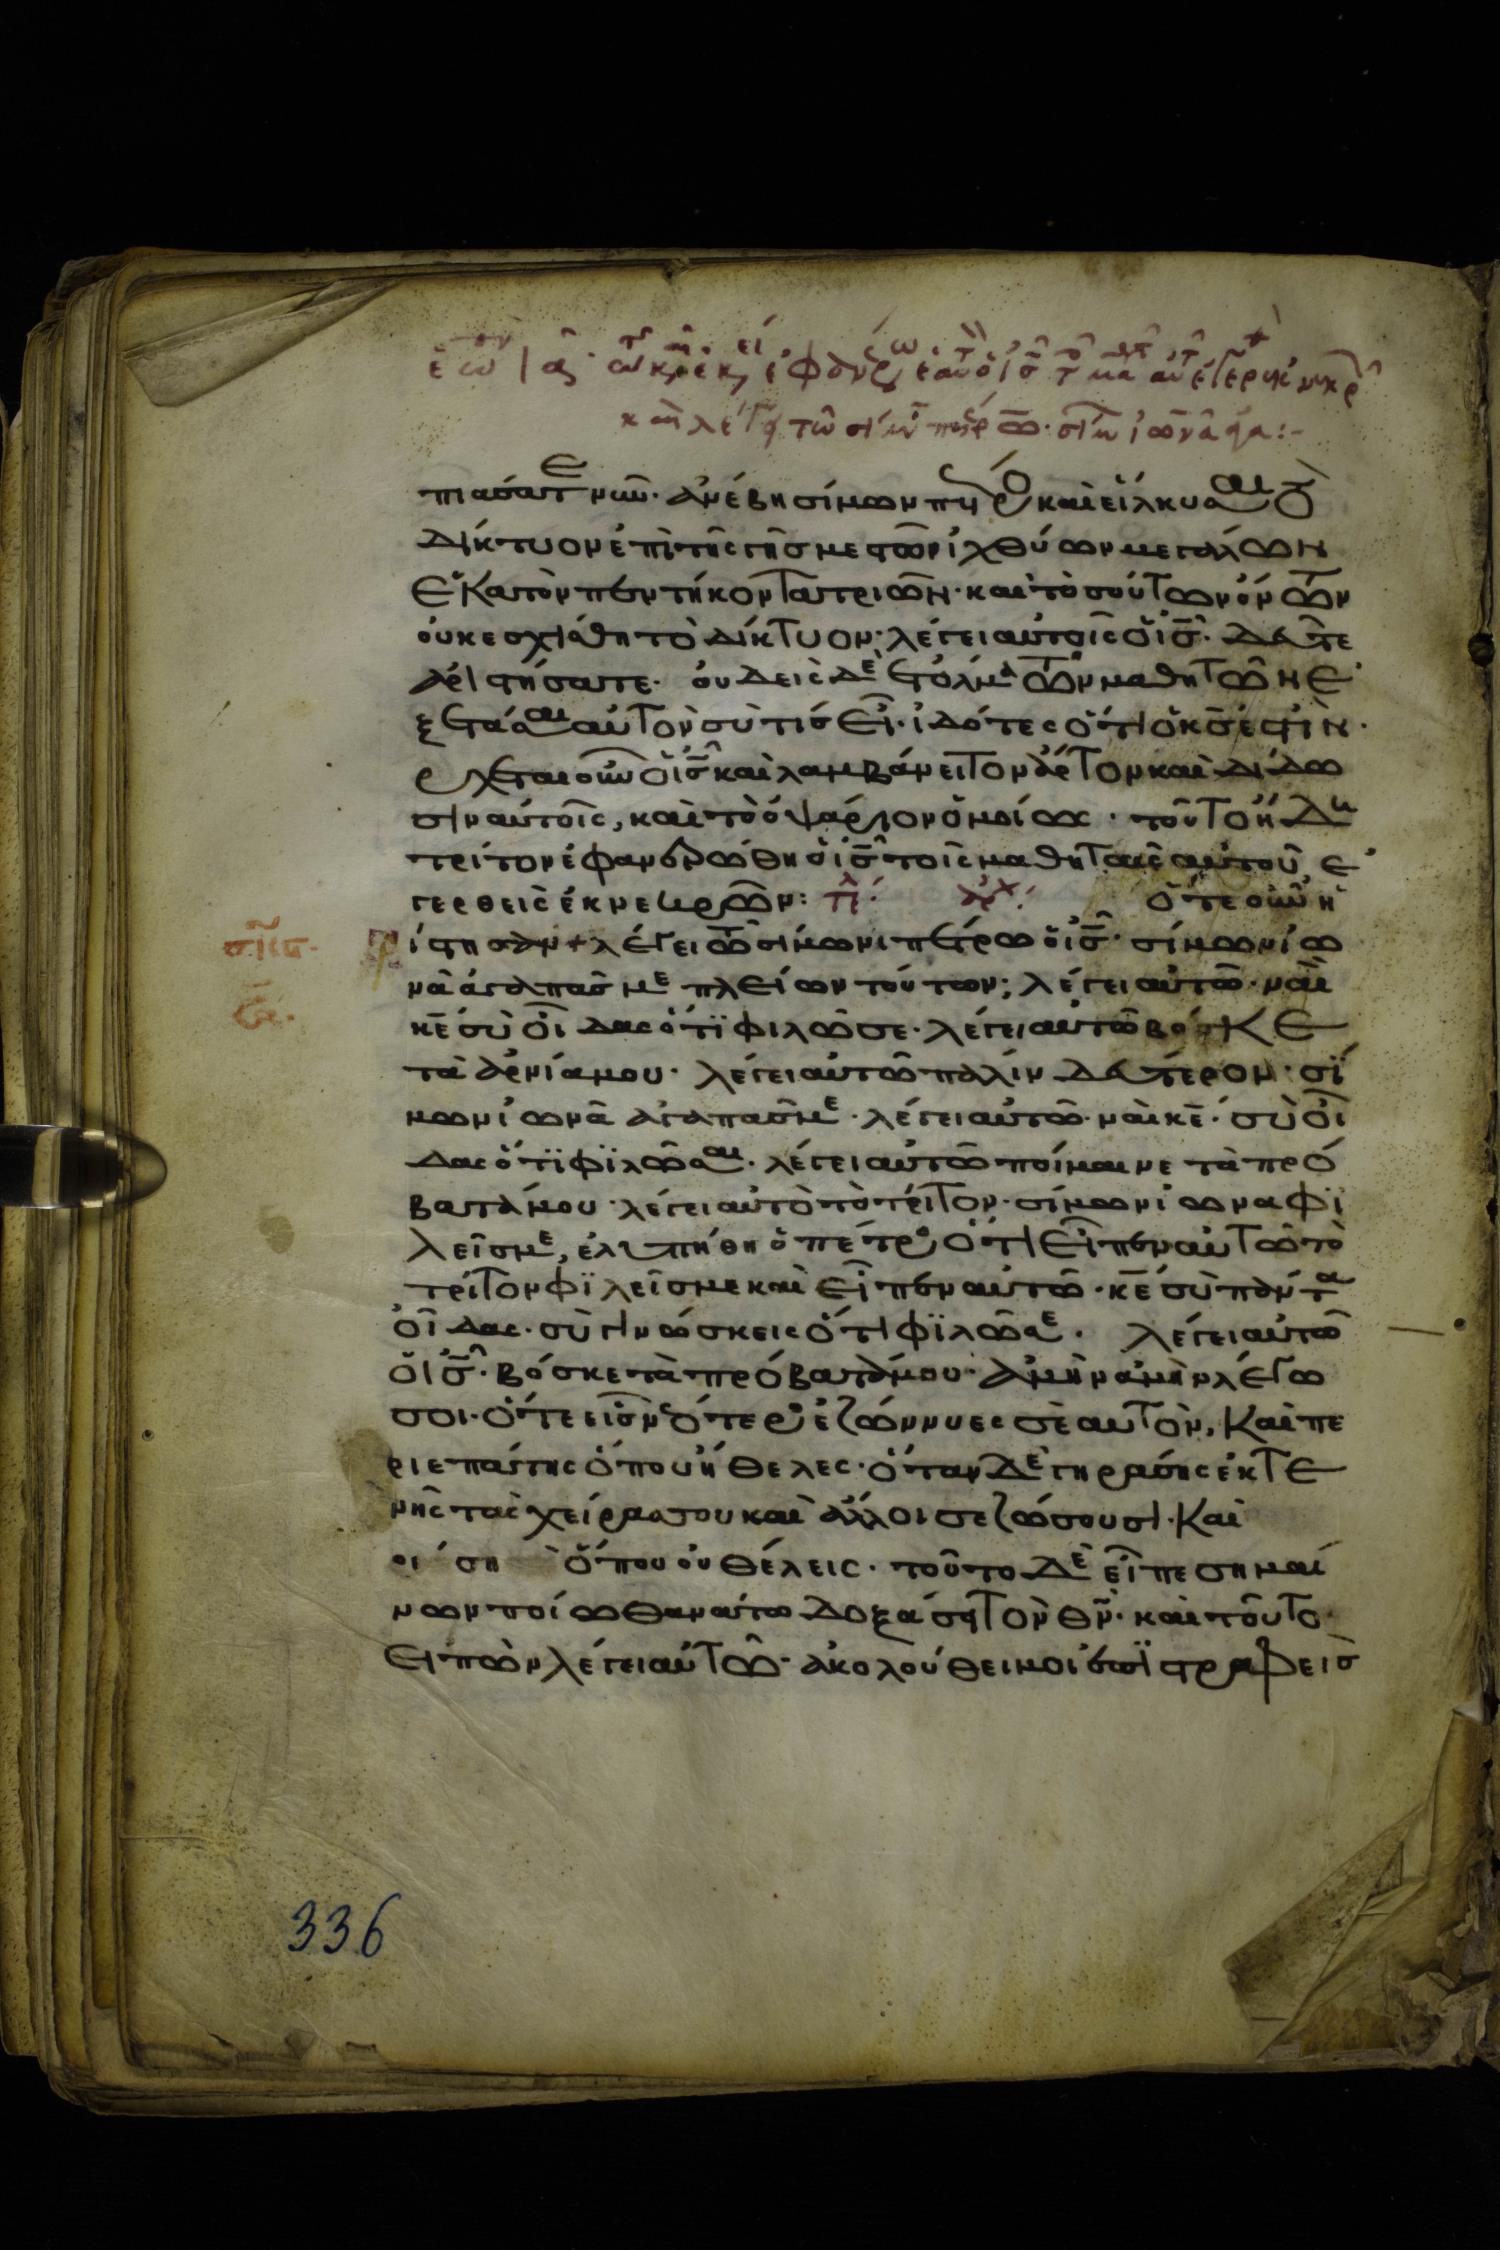 πιασατε νυν· ἀνέβη σίμων πέτρος καὶ εἵλκυσαι τὸ
δίκτυον ἐπὶ τῆς γῆσ μεστῶν ἰχθύων μεγάλων
ἑκατὸν πεντήκοντα τριῶν· καὶ τοσούτων ὄντων
οὐκ ἐσχίσθη τὸ δίκτυον· λέγει αὐτοῖς ὁ ις̅· δεῦτε
ἀριστήσατε· οὐδεὶς δὲ ἐτόλμα τῶν μαθητῶν ἐ
ξετάσαι αὐτὸν σὺ τίσ εἶ· ἰδότες ὅτι ὁ κσ̅ ἐστὶν·
ἔρχεται οὖν ὁ ισ̅ καὶ λαμβάνει τὸν ἄρτον καὶ δίδω
σιν αὐτοῖς, καὶ τὸ ὀψάριον ὁμοίως· τοῦτο ἤδη
τρίτον ἐφανερώθη ὁ ισ̅ τοῖς μαθηταῖς αὐτοῦ ἐ
γερθεὶς ἐκ νεκρῶν: τέλ: ἀρχ: ὅτε οὖν ἠ
ρίστησαν + λέγει τῶ σίμωνι πέτρω ὁ ισ̅· σίμων ἰω
νᾶ ἀγαπᾶσ με πλείων τούτων; λέγει αὐτῶ· ναὶ
κε̅ σὺ οἶδας ὅτι φιλῶ σε· λέγει αὐτῶ βόσκε
τὰ ἀρνία μου· λέγει αὐτῶ πάλιν δεύτερον· σί
μων ἰωνᾶ ἀγαπᾶσ με· λέγει αὐτῶ· ναὶ κε̅· σὺ οἶ
δας ὅτι φιλῶ σαι· λέγει αὐτῶ ποίμαινε τὰ πρό
βατά μου· λέγει αὐτὸ τὸ τρίτον· σίμων ἰωνα φι
λεῖσ με, ἐλυπήθη ὁ πέτρος ὅτι εἶπεν αὐτῶ τὸ
τρίτον φιλεῖσ με καὶ εἶπεν αὐτῶ· κε̅ σὺ πάντα
οἶδας· σὺ γινώσκεις ὅτι φιλῶ σε· λέγει αὐτῶ
ὁ ισ̅· βόσκε τὰ πρόβατά μου· ἀμὴν ἀμὴν λέγω
σοι· ὅτε εἶσ νεότερος ἐζώννυες σὲαυτὸν, καὶ πε
ριεπάτης ὅπου ἤθελες· ὅταν δὲ γηράσης ἐκτε
νῆς τὰς χείρασ σου καὶ ἄλλοι σε ζώσουσι· καὶ
οἴση ὅπου οὐ θέλεις· τοῦτο δὲ εἶπε σημαί
νων ποίω θανάτω δοξάση τὸν θν̅· καὶ τοῦτο
εἰπὼν λέγει αὐτῶ· ἀκολούθει μοι στραφεὶσ
336